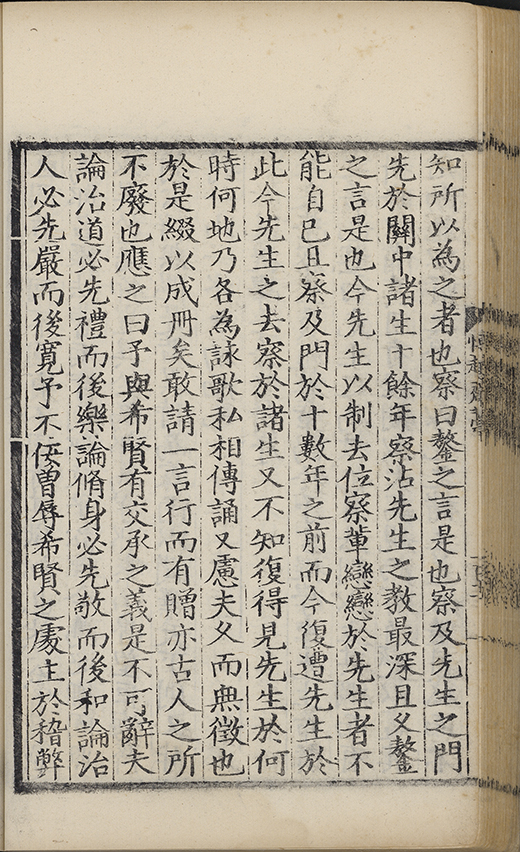 知所以為之者也察曰鏊之言是也察及先生之門
先於關中諸生十餘年察沾先生之教最深且久鏊
之言是也今先生以制去位察軰戀戀於先生者不
能自已且察及門於十數年之前而今復遭先生於
此今先生之去察於諸生又不知復得見先生於何
時何地乃各為詠歌私相傳誦又慮夫久而無徵也
於是綴以成冊矣敢請一言行而有贈亦古人之所
不廢也應之曰予與希賢有交承之義是不可辭夫
論治道必先禮而後樂論脩身必先敬而後和論治
人必先嚴而後寛予不佞曽辱希賢之處士於稽弊